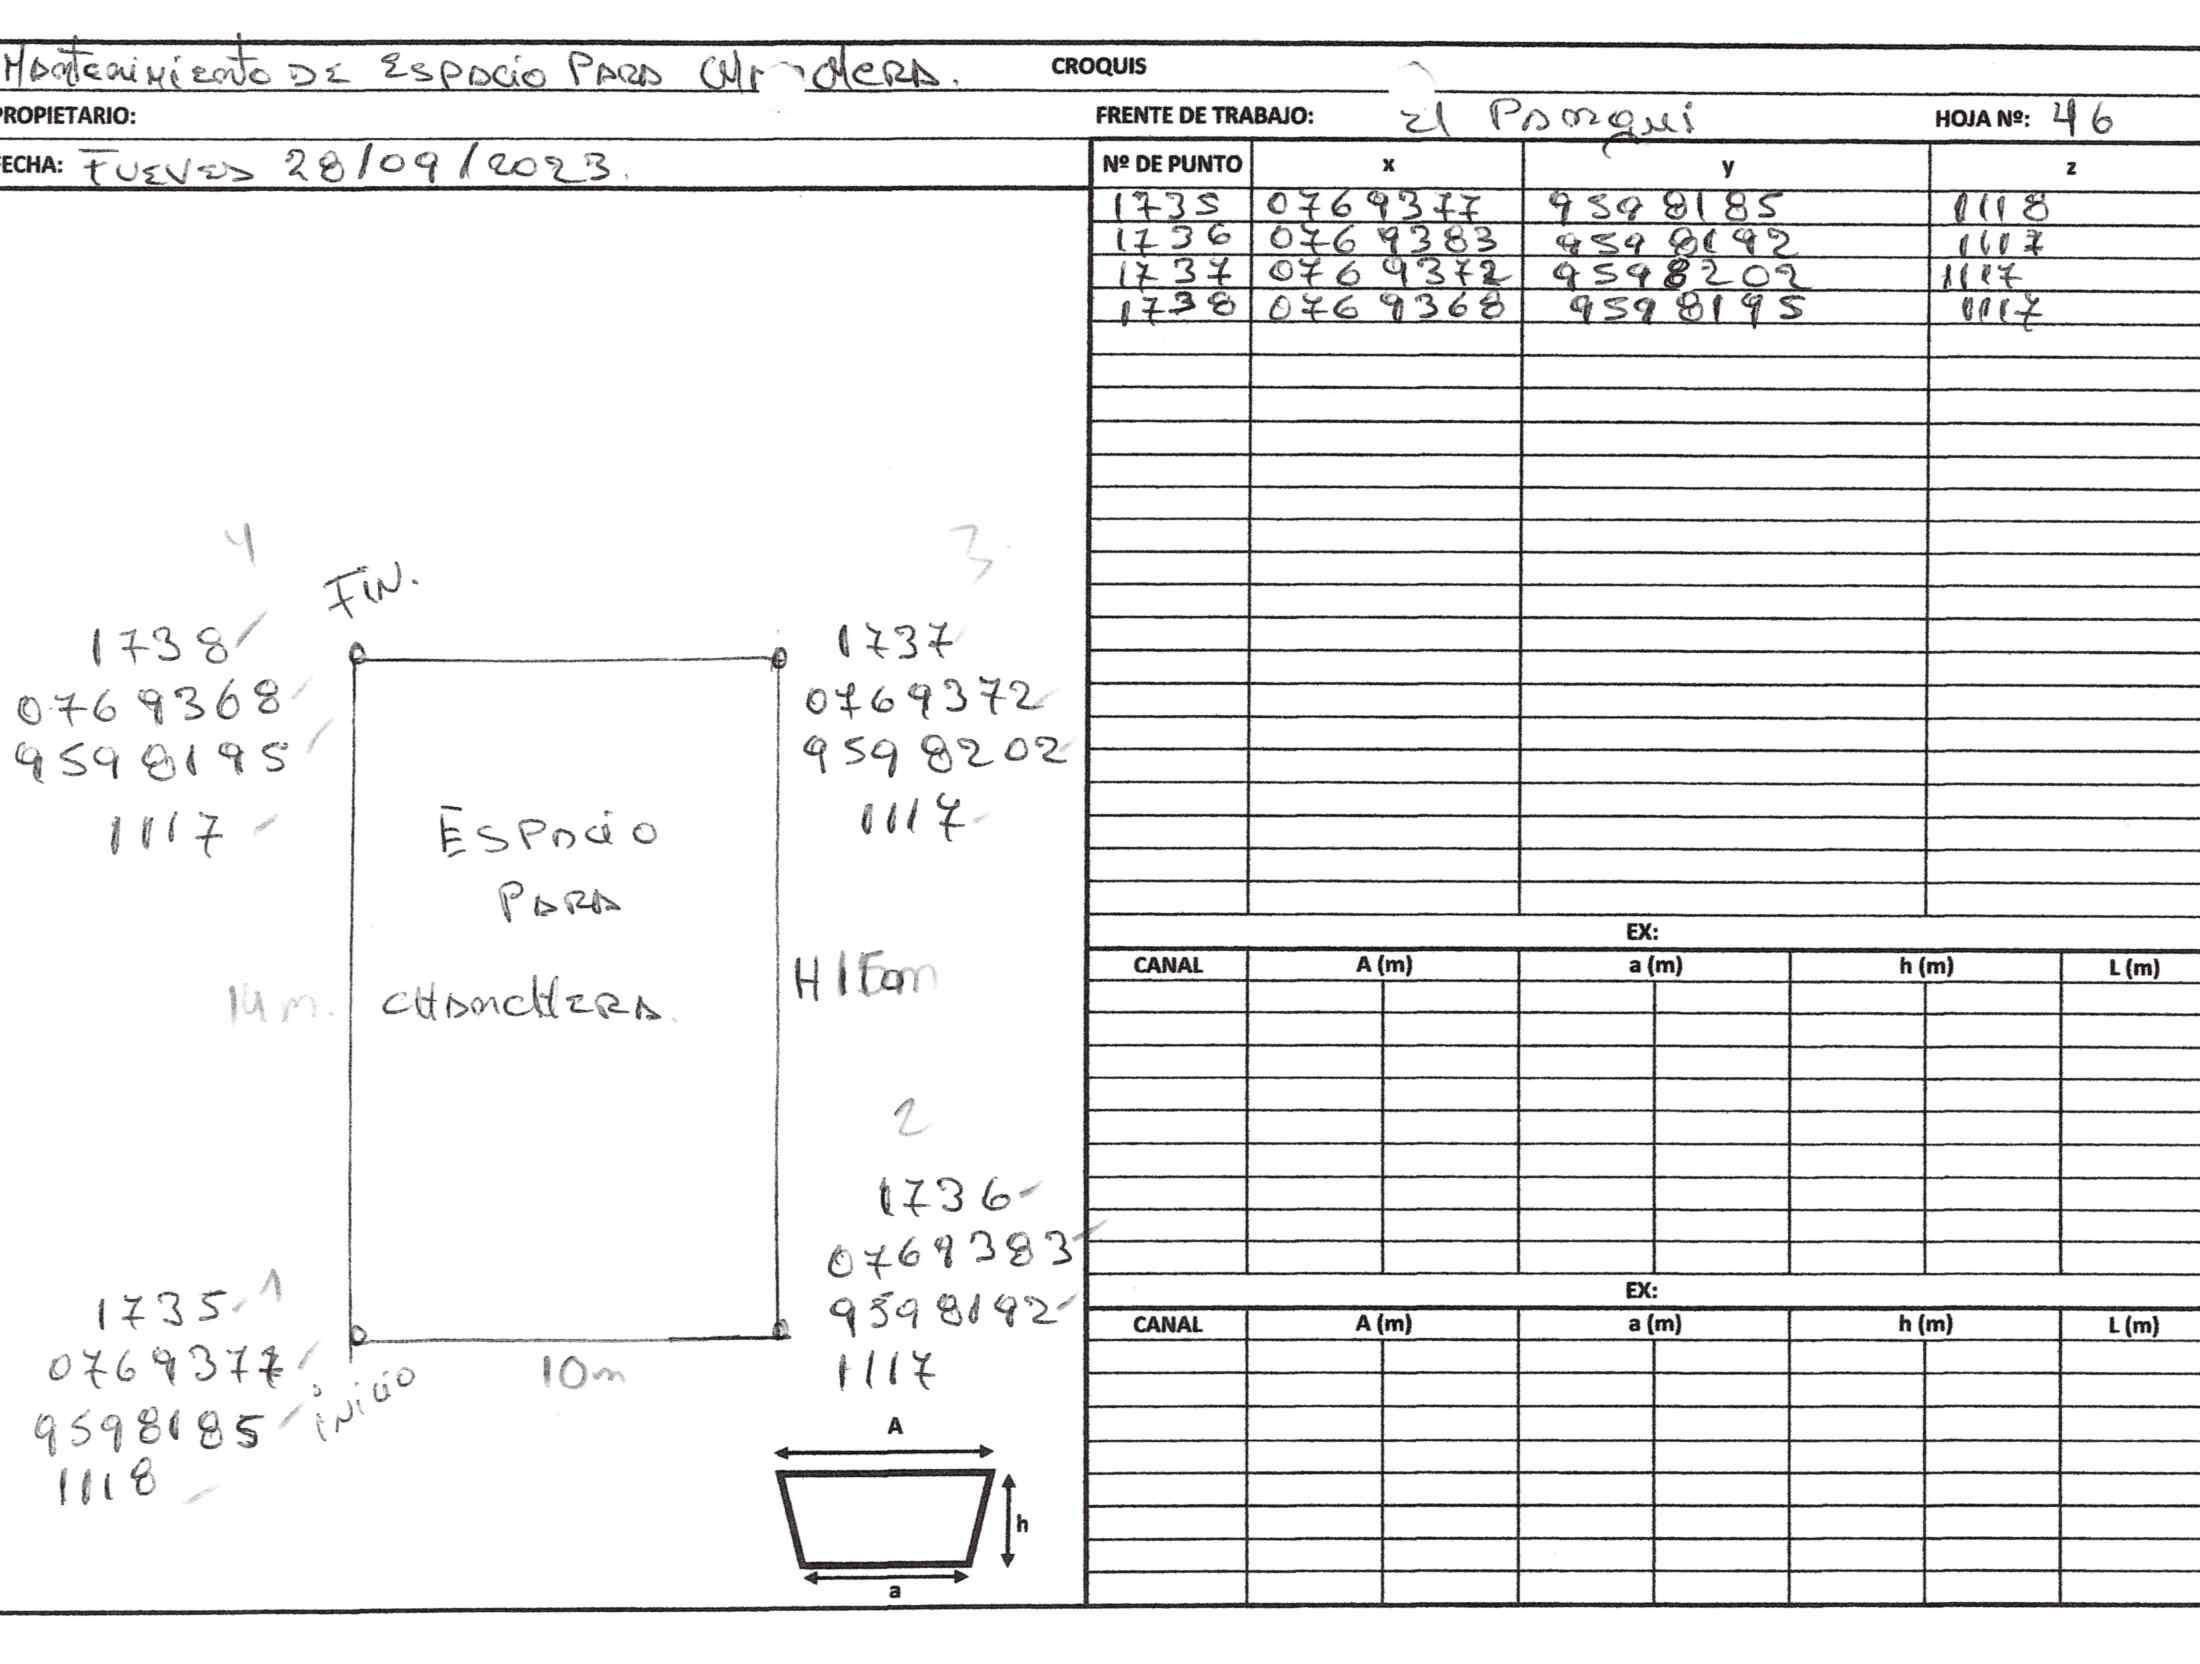 Mantenimiento DE Espacio PARA
CROQUIS
PROPIETARIO:
FRENTE DE TRABAJO: El Pangui
HOJA Nº: 46
FECHA: Jueves 28/09/2023.
Nº DE PUNTO x y z
1735 0769377 9598185 1118
1736 0769383 9598192 1117
1737 0769372 9598202 1117
1738 0769368 9598195 1117
4
3
FIN.
1738
0769368
9598195
1117
1737
0769372
9598202
1117
ESPACIO
PARA
CHANCHERA.
14 m.
2
1736
0769383
9598192
1117
1
1735
0769377
9598185
1118
inicio
10m
A
h
a
EX:
CANAL A (m) a (m) h (m) L (m)
EX:
CANAL A (m) a (m) h (m) L (m)